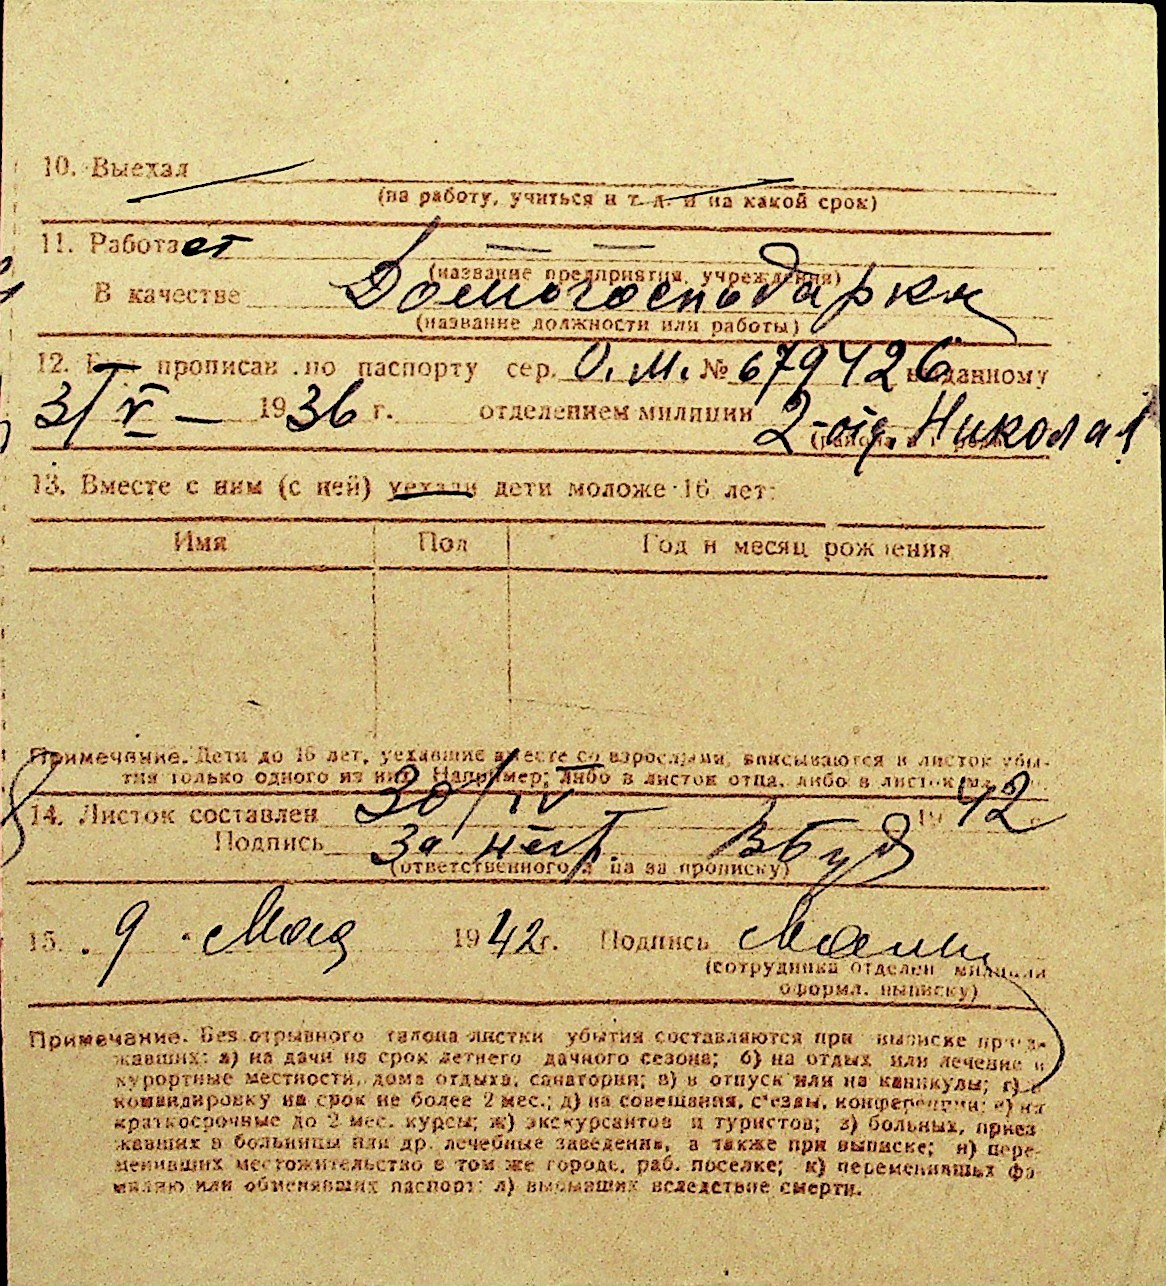 10. Выехал
(на работу, учиться и т. д. и на какой срок)
11. Работает — —
(название предприятия, учреждения)
В качестве Домогосподарка
(название должности или работы)
12. прописан по паспорту сер. О.М. № 679426 выданному
3/V — 1936 г. отделением милиции 2-отд. Николаї
13. Вместе с ним (с ней) уехали дети моложе 16 лет:
Имя Пол Год и месяц рождения
Примечание. Дети до 16 лет, уехавшие вместе со взрослыми, вписываются в листок убы-
тия только одного из них. Например; либо в листок отца, либо в листок
14. Листок составлен 30/IV 1942 г.
Подпись За
(ответственного за прописку)
15. 9 Мая 1942 г. Подпись
(сотрудника отделен милиции
оформл. выписку)
Примечание. Без отрывного талона листки убытия составляются при выписке приез-
жавших: а) на дачи на срок летнего дачного сезона; б) на отдых или лечение в
курортные местности, дома отдыха, санатории; в) в отпуск или на каникулы; г) в
командировку на срок не более 2 мес.; д) на совещания, с'езды, конференции; е) на
краткосрочные до 2 мес. курсы; ж) экскурсантов и туристов; з) больных, приез
жавших в больницы или др. лечебные заведения, а также при выписке; и) пере-
менивших местожительство в том же городе, раб. поселке; к) переменивших фа
милию или обменявших паспорт; л) выбывших вследствие смерти.